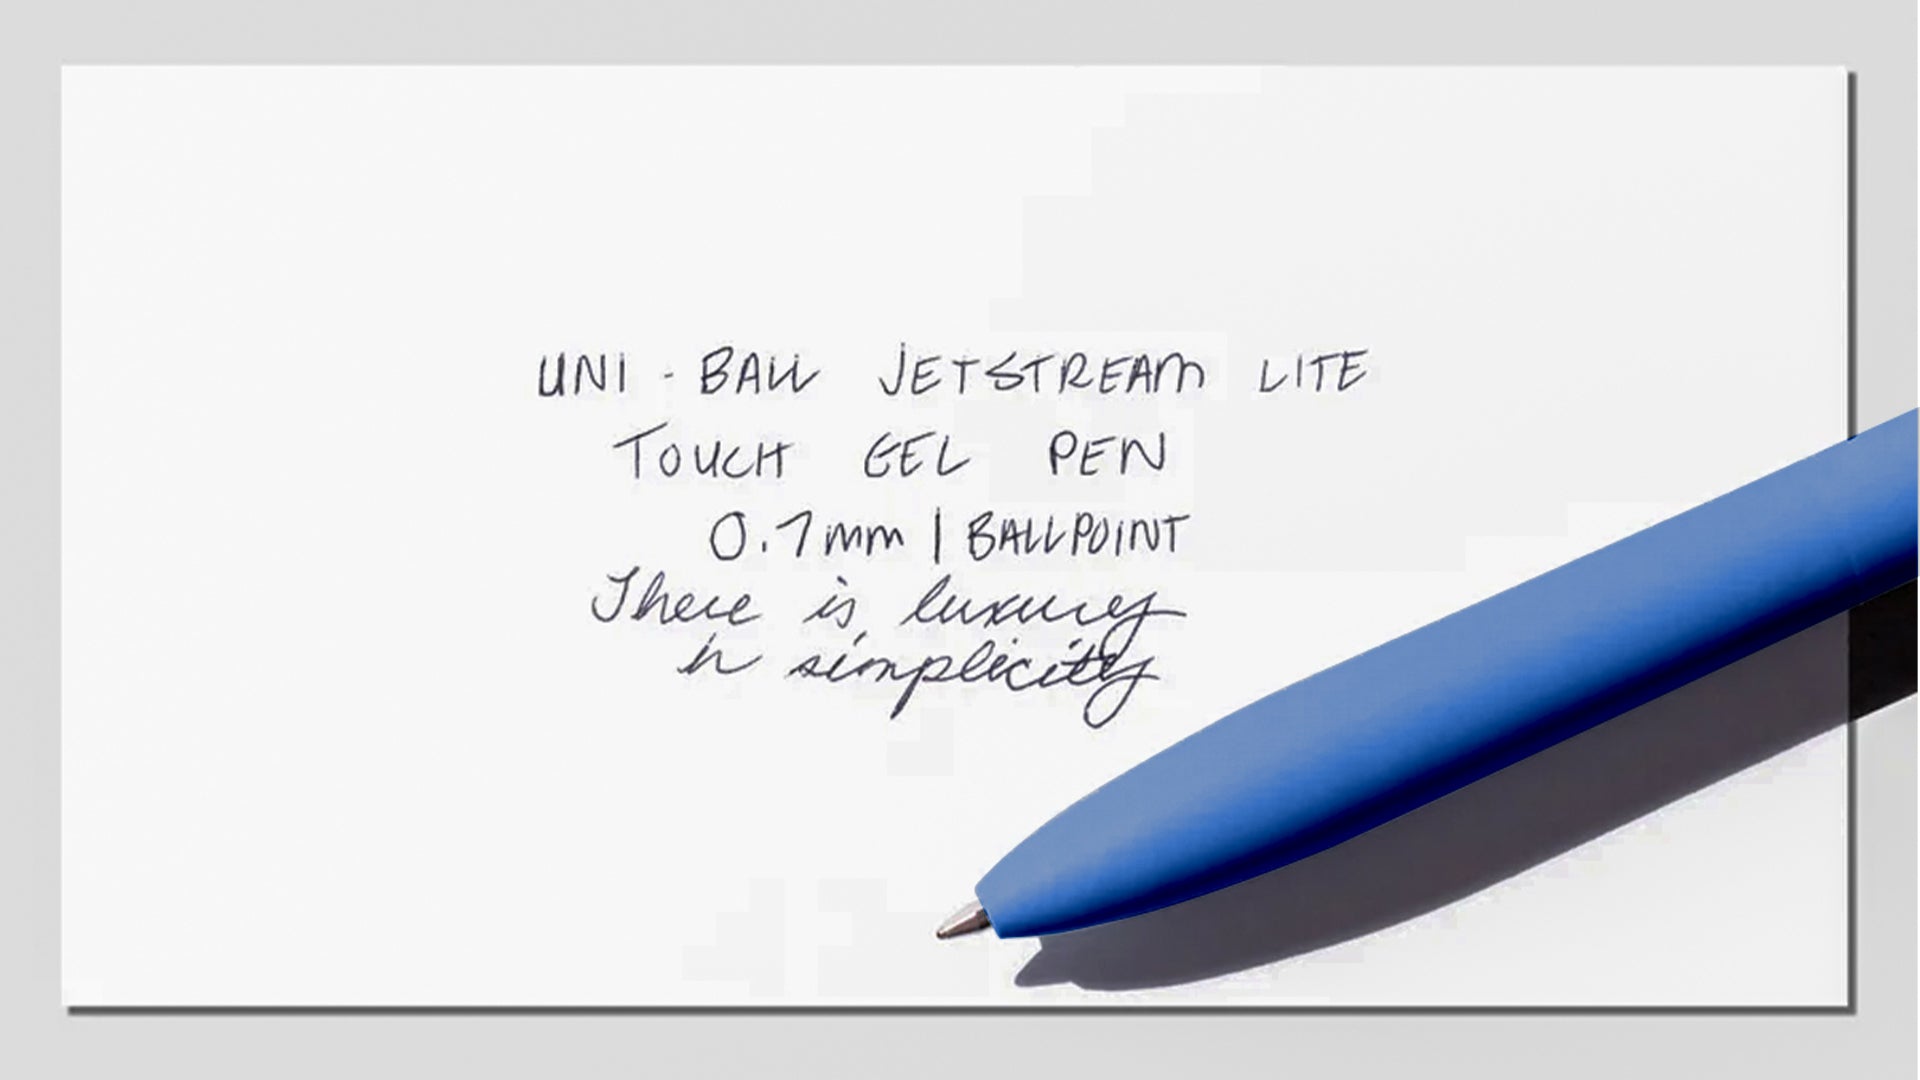 UNI-BALL JETSTREAM LITE
TOUCH GEL PEN
0.7mm | BALLPOINT
There is luxury
in simplicity